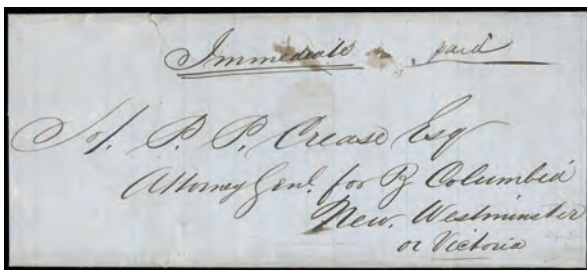 Immediate paid
To/. P. P. Crease Esq
Attorney Genl. for B Columbia
New. Westminster
or Victoria